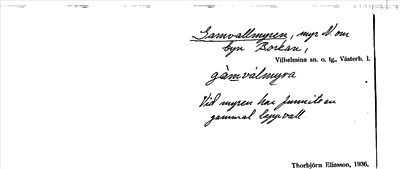 Gamvallmyren, myr N. om
byn Borkan,
Vilhelmina sn. o. tg., Västerb. l.
gàmválmyra
Vid myren har funnits en
gammal lappvall
Thorbjörn Eliasson, 1936.